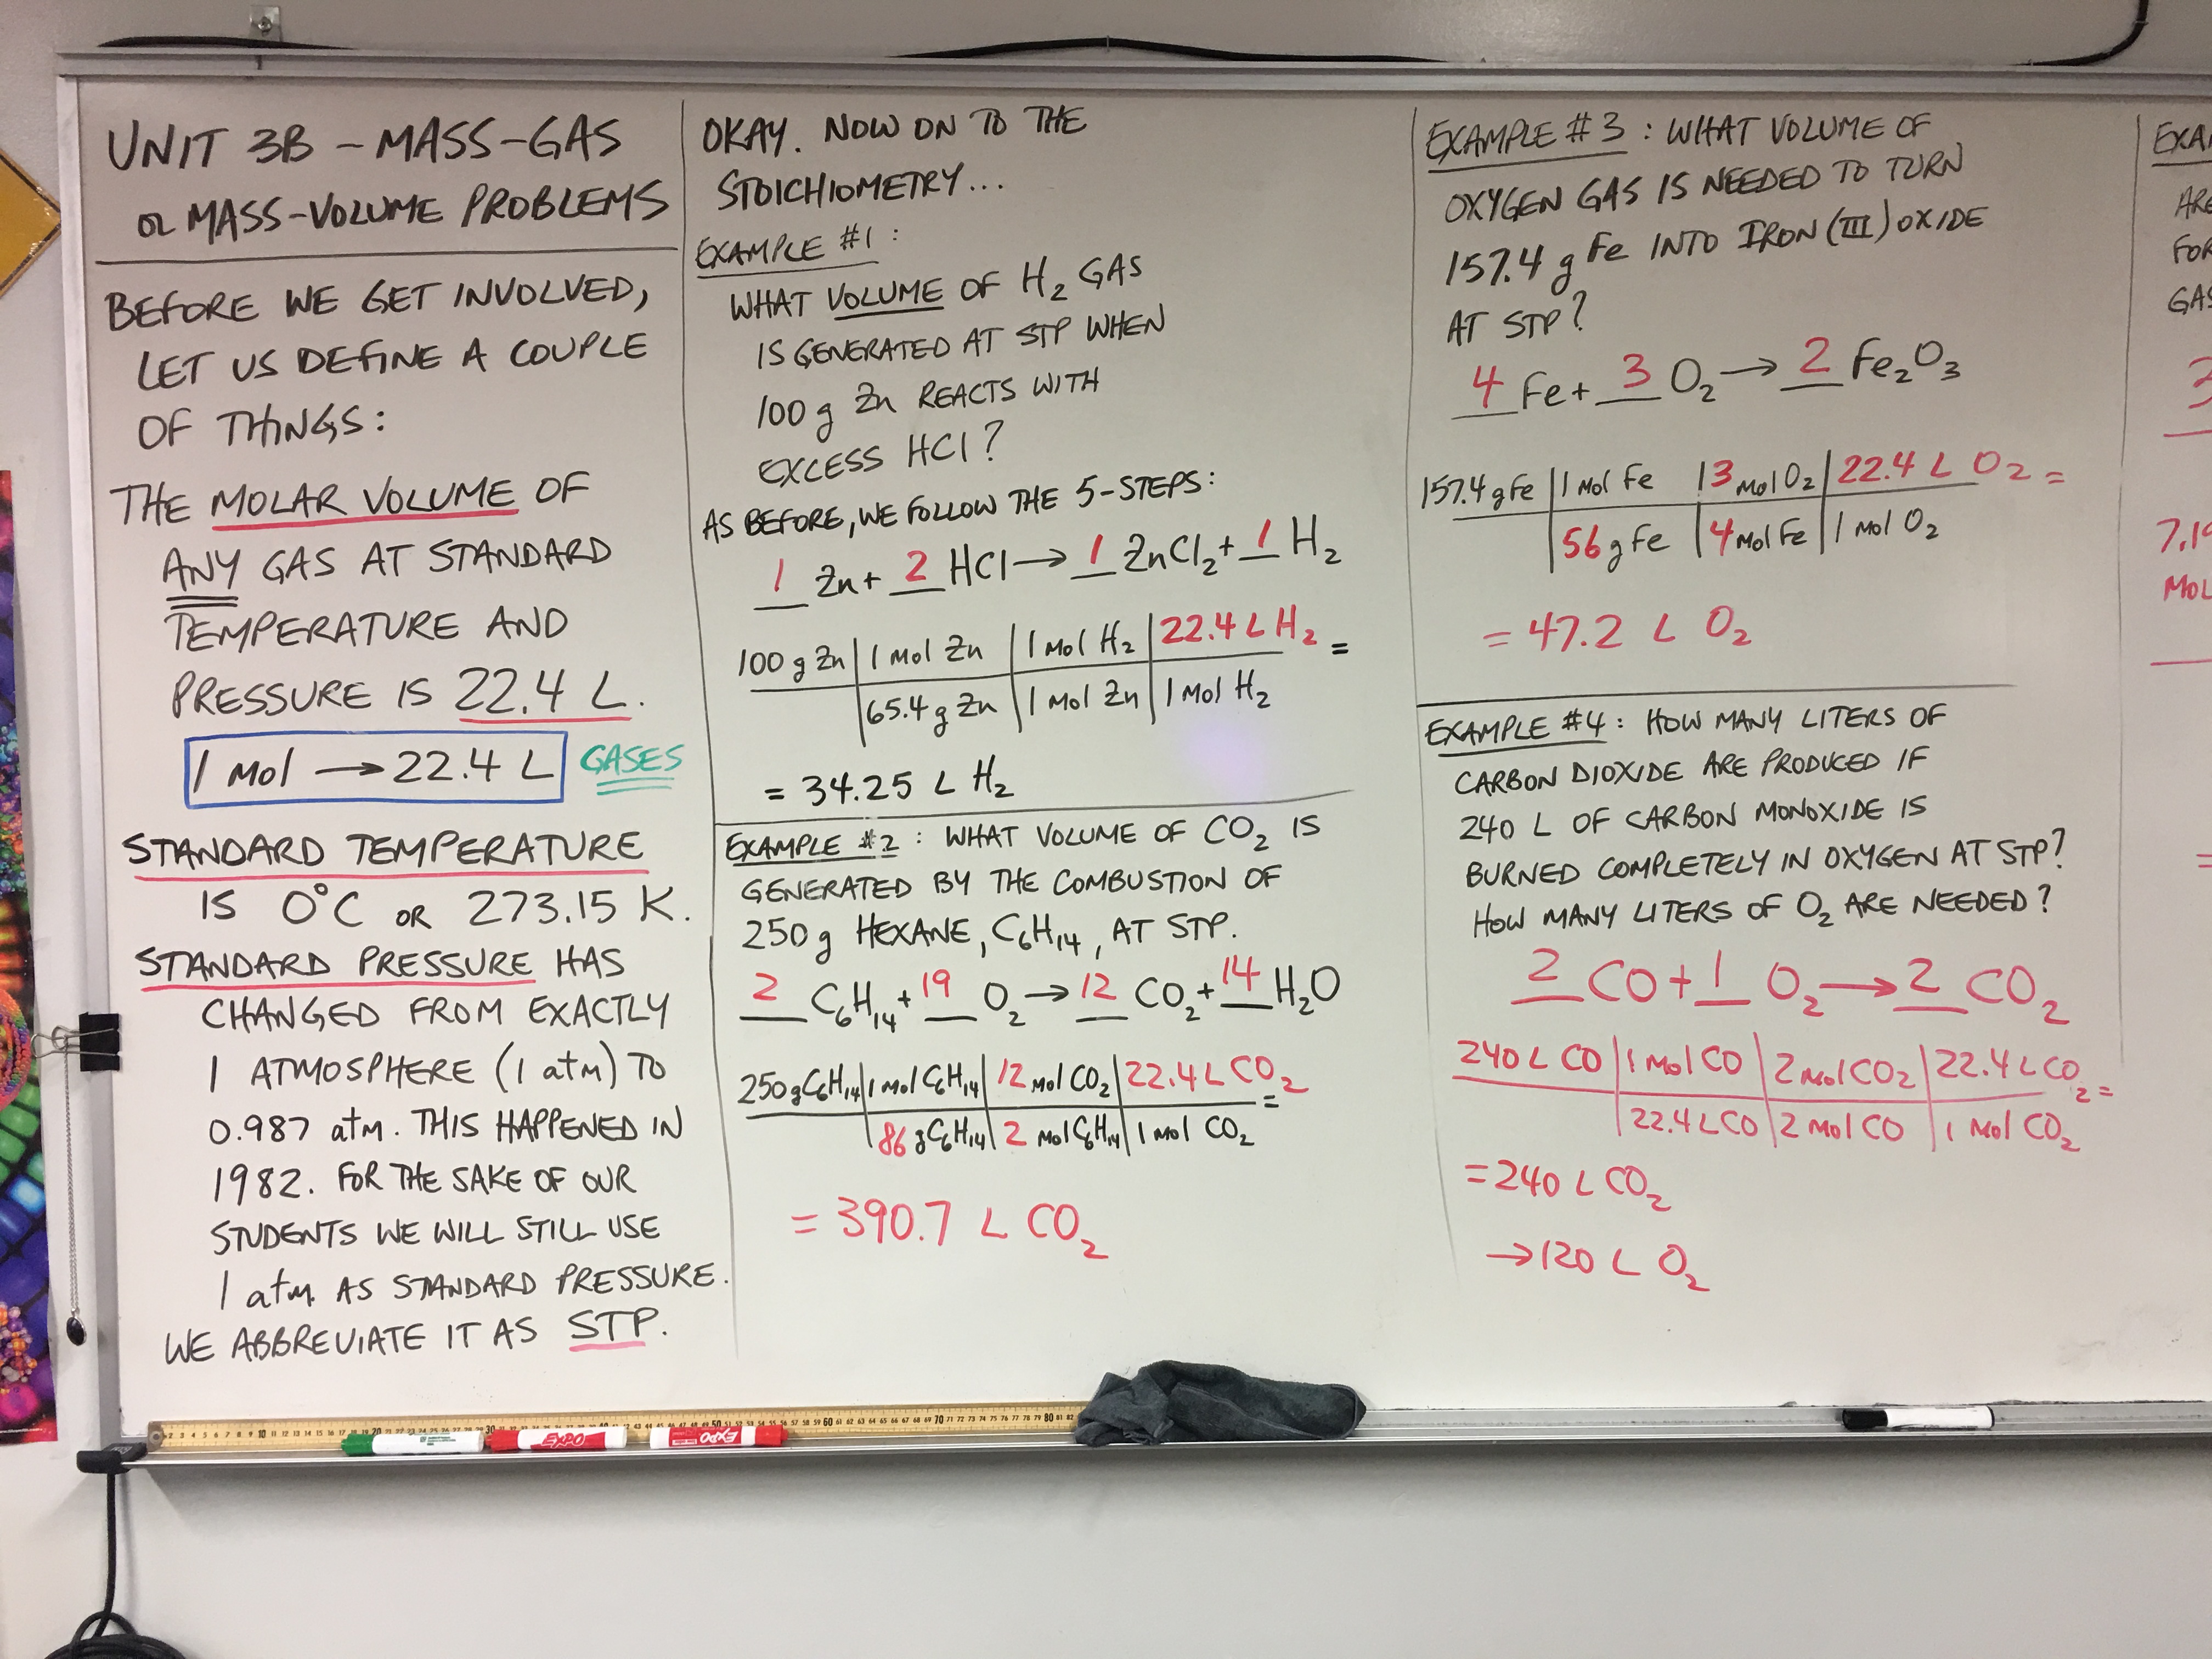 UNIT 3B - MASS-GAS
OR MASS-VOLUME PROBLEMS
BEFORE WE GET INVOLVED,
LET US DEFINE A COUPLE
OF THINGS:
THE MOLAR VOLUME OF
ANY GAS AT STANDARD
TEMPERATURE AND
PRESSURE IS 22.4 L.
1 Mol → 22.4 L GASES
STANDARD TEMPERATURE
IS 0°C OR 273.15 K.
STANDARD PRESSURE HAS
CHANGED FROM EXACTLY
1 ATMOSPHERE (1 atm) TO
0.987 atm. THIS HAPPENED IN
1982. FOR THE SAKE OF OUR
STUDENTS WE WILL STILL USE
1 atm AS STANDARD PRESSURE.
WE ABBREVIATE IT AS STP.
OKAY. NOW ON TO THE
STOICHIOMETRY...
EXAMPLE #1:
WHAT VOLUME OF H₂ GAS
IS GENERATED AT STP WHEN
100 g Zn REACTS WITH
EXCESS HCl?
AS BEFORE, WE FOLLOW THE 5-STEPS:
1 Zn + 2 HCl → 1 ZnCl₂ + 1 H₂
100 g Zn | 1 Mol Zn | 1 Mol H₂ | 22.4 L H₂ =
65.4 g Zn | 1 Mol Zn | 1 Mol H₂
= 34.25 L H₂
EXAMPLE #2: WHAT VOLUME OF CO₂ IS
GENERATED BY THE COMBUSTION OF
250 g HEXANE, C₆H₁₄, AT STP.
2 C₆H₁₄ + 19 O₂ → 12 CO₂ + 14 H₂O
250 g C₆H₁₄ | 1 Mol C₆H₁₄ | 12 Mol CO₂ | 22.4 L CO₂ =
86 g C₆H₁₄ | 2 Mol C₆H₁₄ | 1 Mol CO₂
= 390.7 L CO₂
EXAMPLE #3: WHAT VOLUME OF
OXYGEN GAS IS NEEDED TO TURN
157.4 g Fe INTO IRON (III) OXIDE
AT STP?
4 Fe + 3 O₂ → 2 Fe₂O₃
157.4 g Fe | 1 Mol Fe | 3 Mol O₂ | 22.4 L O₂ =
56 g Fe | 4 Mol Fe | 1 Mol O₂
= 47.2 L O₂
EXAMPLE #4: HOW MANY LITERS OF
CARBON DIOXIDE ARE PRODUCED IF
240 L OF CARBON MONOXIDE IS
BURNED COMPLETELY IN OXYGEN AT STP?
HOW MANY LITERS OF O₂ ARE NEEDED?
2 CO + 1 O₂ → 2 CO₂
240 L CO | 1 Mol CO | 2 Mol CO₂ | 22.4 L CO₂ =
22.4 L CO | 2 Mol CO | 1 Mol CO₂
= 240 L CO₂
→ 120 L O₂
EXPO
EXPO